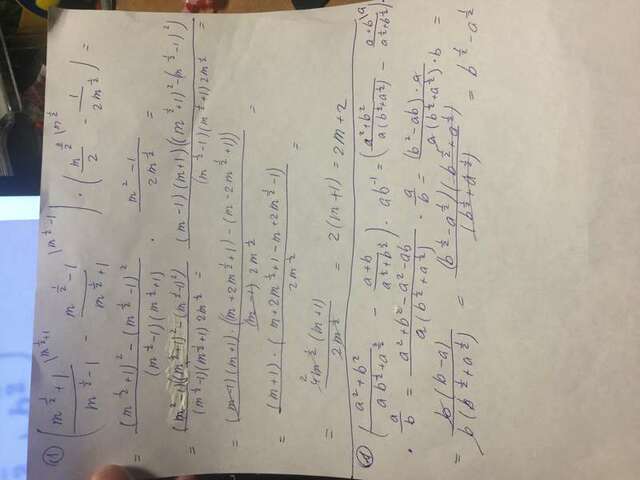 ① ( (m^½+1)/(m^½-1) |m^½+1 - (m^½-1)/(m^½+1) |m^½-1 ) · ( m^(3/2)/2 |m^½ - 1/(2m^½) ) =
= ((m^½+1)² - (m^½-1)²)/((m^½-1)(m^½+1)) · (m²-1)/(2m^½) =
= ((m²-1)((m^½+1)²-(m^½-1)²)/((m^½-1)(m^½+1) 2m^½) = ((m-1)(m+1)((m^½+1)²-(m^½-1)²)/((m^½-1)(m^½+1) 2m^½) =
= ((m-1)(m+1)·((m+2m^½+1)-(m-2m^½+1))/((m-1) 2m^½) =
= ((m+1)·(m+2m^½+1-m+2m^½-1)/(2m^½) =
= 2 4m^½(m+1)/(2m^½) = 2(m+1) = 2m+2
② ( (a²+b²)/(ab^½+a^½) - (a+b)/(a^½+b^½) ) · ab^-1 = ( (a²+b²)/(a(b^½+a^½)) - (a+b)/(a^½+b^½) |a ) ·
· a/b = (a²+b²-a²-ab)/(a(b^½+a^½)) · a/b = ((b²-ab)·a)/(a(b^½+a^½)·b) =
= b(b-a)/(b(b^½+a^½)) = ((b^½-a^½)(b^½+a^½))/((b^½+a^½)) = b^½-a^½